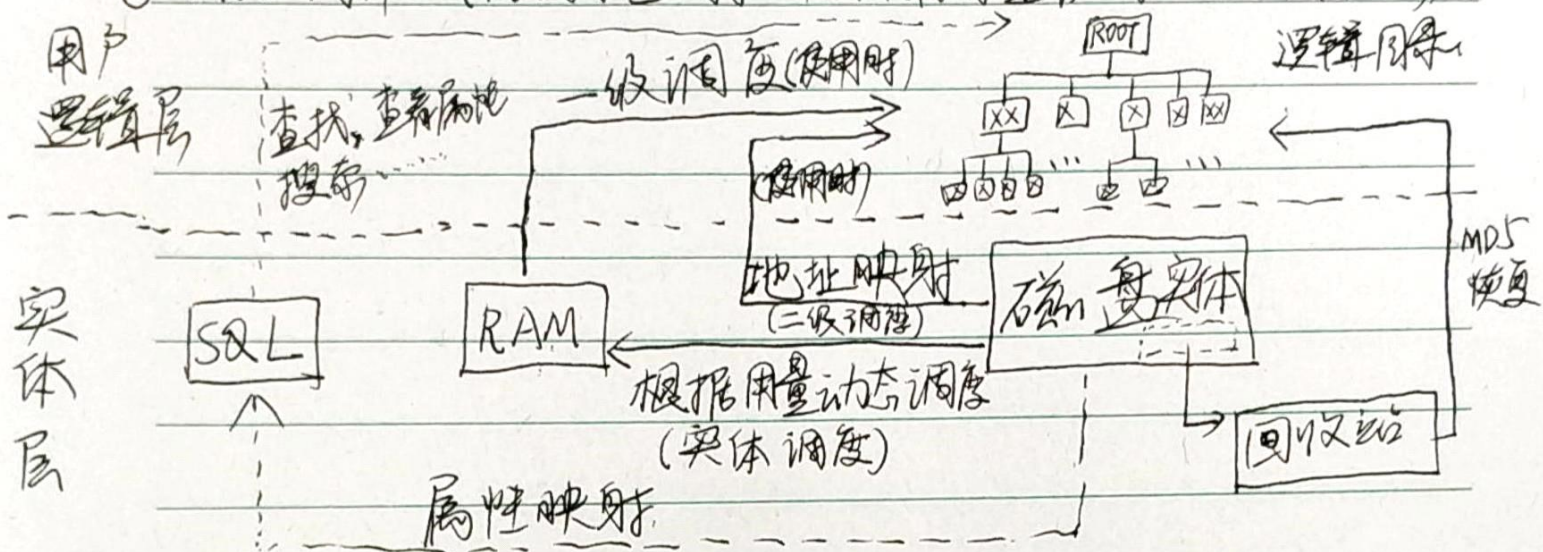 用户
逻辑层
查找,查看属性
搜索……
一级调度(使用时)
(使用时)
ROOT
逻辑目录
XX X X X XX
…
…
实
体
层
SQL
RAM
地址映射
(二级调度)
磁盘实体
根据用量动态调度
(实体调度)
回收站
MD5
恢复
属性映射